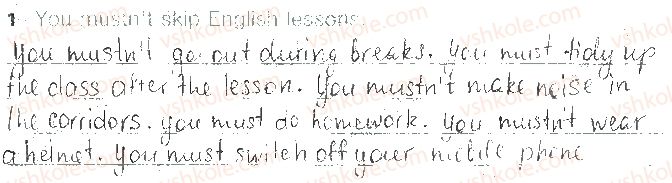 1 You mustn't skip English lessons.
You mustn't go out during breaks. You must tidy up
the class after the lesson. You mustn't make noise in
the corridors. You must do homework. You mustn't wear
a helmet. You must switch off your mobile phone